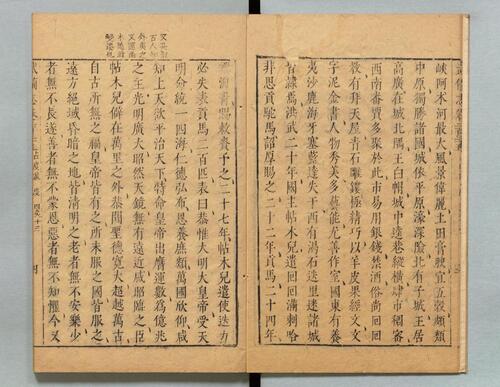 峽阿木河最大風景偉麗土田膏腴宜五穀頗類
中原獨勝諸國城依平原濠深險北有子城王居
高廣在城北隅王白帽城中逵巷縱橫肆市稠密
西南番賈多聚於此市易用銀錢禁酒俗尚回回
教有拜天屋青石雕鏤極精巧以羊皮裹經文文
字泥金書人物秀美多藝能尤善作室國東有養
夷沙鹿海牙塞藍達失干西有渴石迭里迷諸城
皆隸焉洪武二十年國主帖木兒遣回回滿剌哈
非思貢駝馬詔厚賚之二十二年貢馬二十四年
敕賚予之二十七年帖木兒遣使迭力
必失表貢馬二百匹表曰恭惟大明大皇帝受天
明命統一四海仁德弘布恩養庶類萬國欣仰咸
知上天欲平治天下特命皇帝出膺運數為億兆
之主光明廣大昭然天鏡無有遠近咸照臨之臣
帖木兒僻在萬里之外恭聞聖德寬大超越萬古
自古所無之福皇帝皆有之所未服之國皆服之
遠方絕域昏昧之地皆清明之老者無不安樂少
者無不長遂善者無不蒙恩惡者無不知懼今又